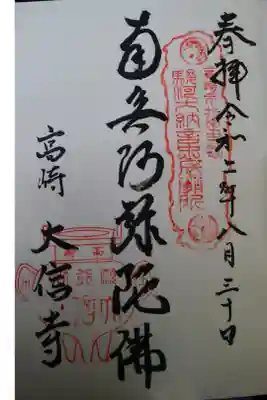 奉拝 令和二年八月三十日
南無阿弥陀佛
高崎 大信寺